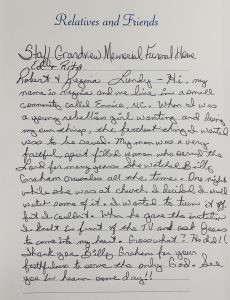 Relatives and Friends
Staff Grandview Memorial Funeral Home
Robert & Regina Lundy - Hi, my
name is Regina and we live in a small
community called Ennice, NC. When I was
a young rebellious girl wanting and doing
my own things, the farthest thing I wanted
was to be saved. My mom was a very
faithful, spirit filled woman who served the
Lord for many years. She watched Billy
Graham crusades all the time. One night
while she was at church, I decided I would
watch some of it. I wanted to turn it off
but I couldn't. When he gave the invitation
I knelt in front of the TV and ask Jesus
to come into my heart. Guess what? He did!!
Thank you Billy Graham for your
faithfulness to serve the only God. See
you in heaven some day!!